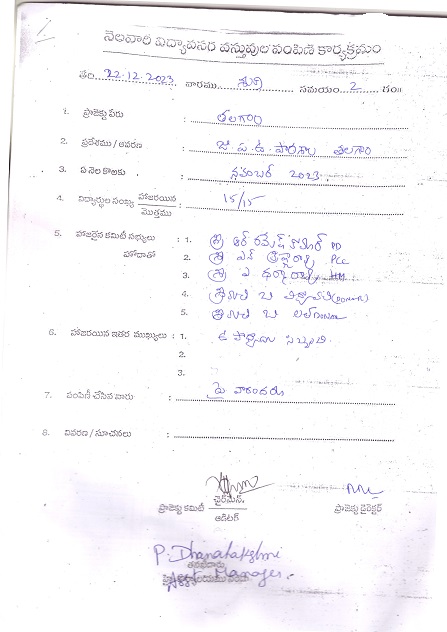 నెలవారి విద్యావసర వస్తువుల పంపిణీ కార్యక్రమం
తేది. 22-12-2023 వారము. శుక్ర సమయం. 2 గం॥
1. ప్రాజెక్టు పేరు : తలగాం
2. ప్రదేశము / ఆవరణ : జి.ప.ఉ. పాఠశాల తలగాం
3. ఏ నెల కొఱకు : నవంబర్ 2023.
4. విద్యార్థుల సంఖ్య హాజరయిన / మొత్తము : 15/15
5. హాజరైన కమిటీ సభ్యులు : 1. శ్రీ ఆర్ రమేష్ కుమార్ PD
హోదాతో 2. శ్రీ ఎన్ PCC
3. శ్రీ ఎ ధర్మారావు HM
4. శ్రీమతి బి (DONOR)
5. శ్రీమతి బి DONOR
6. హాజరయిన ఇతర ముఖ్యులు : 1. ఉపాధ్యాయ సిబ్బంది
2.
3.
7. పంపిణీ చేసిన వారు : పై వారందరు
8. వివరణ / సూచనలు :
ప్రాజెక్టు కమిటీ ఛైర్మెన్. / ఆడిటర్ ప్రాజెక్టు డైరెక్టర్
P. Dhanalakshmi
Asst Manager.